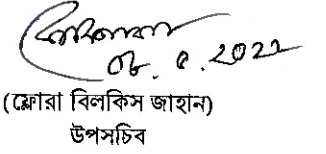 ০৮.৫.2022
(ফ্লোরা বিলকিস জাহান)
উপসচিব